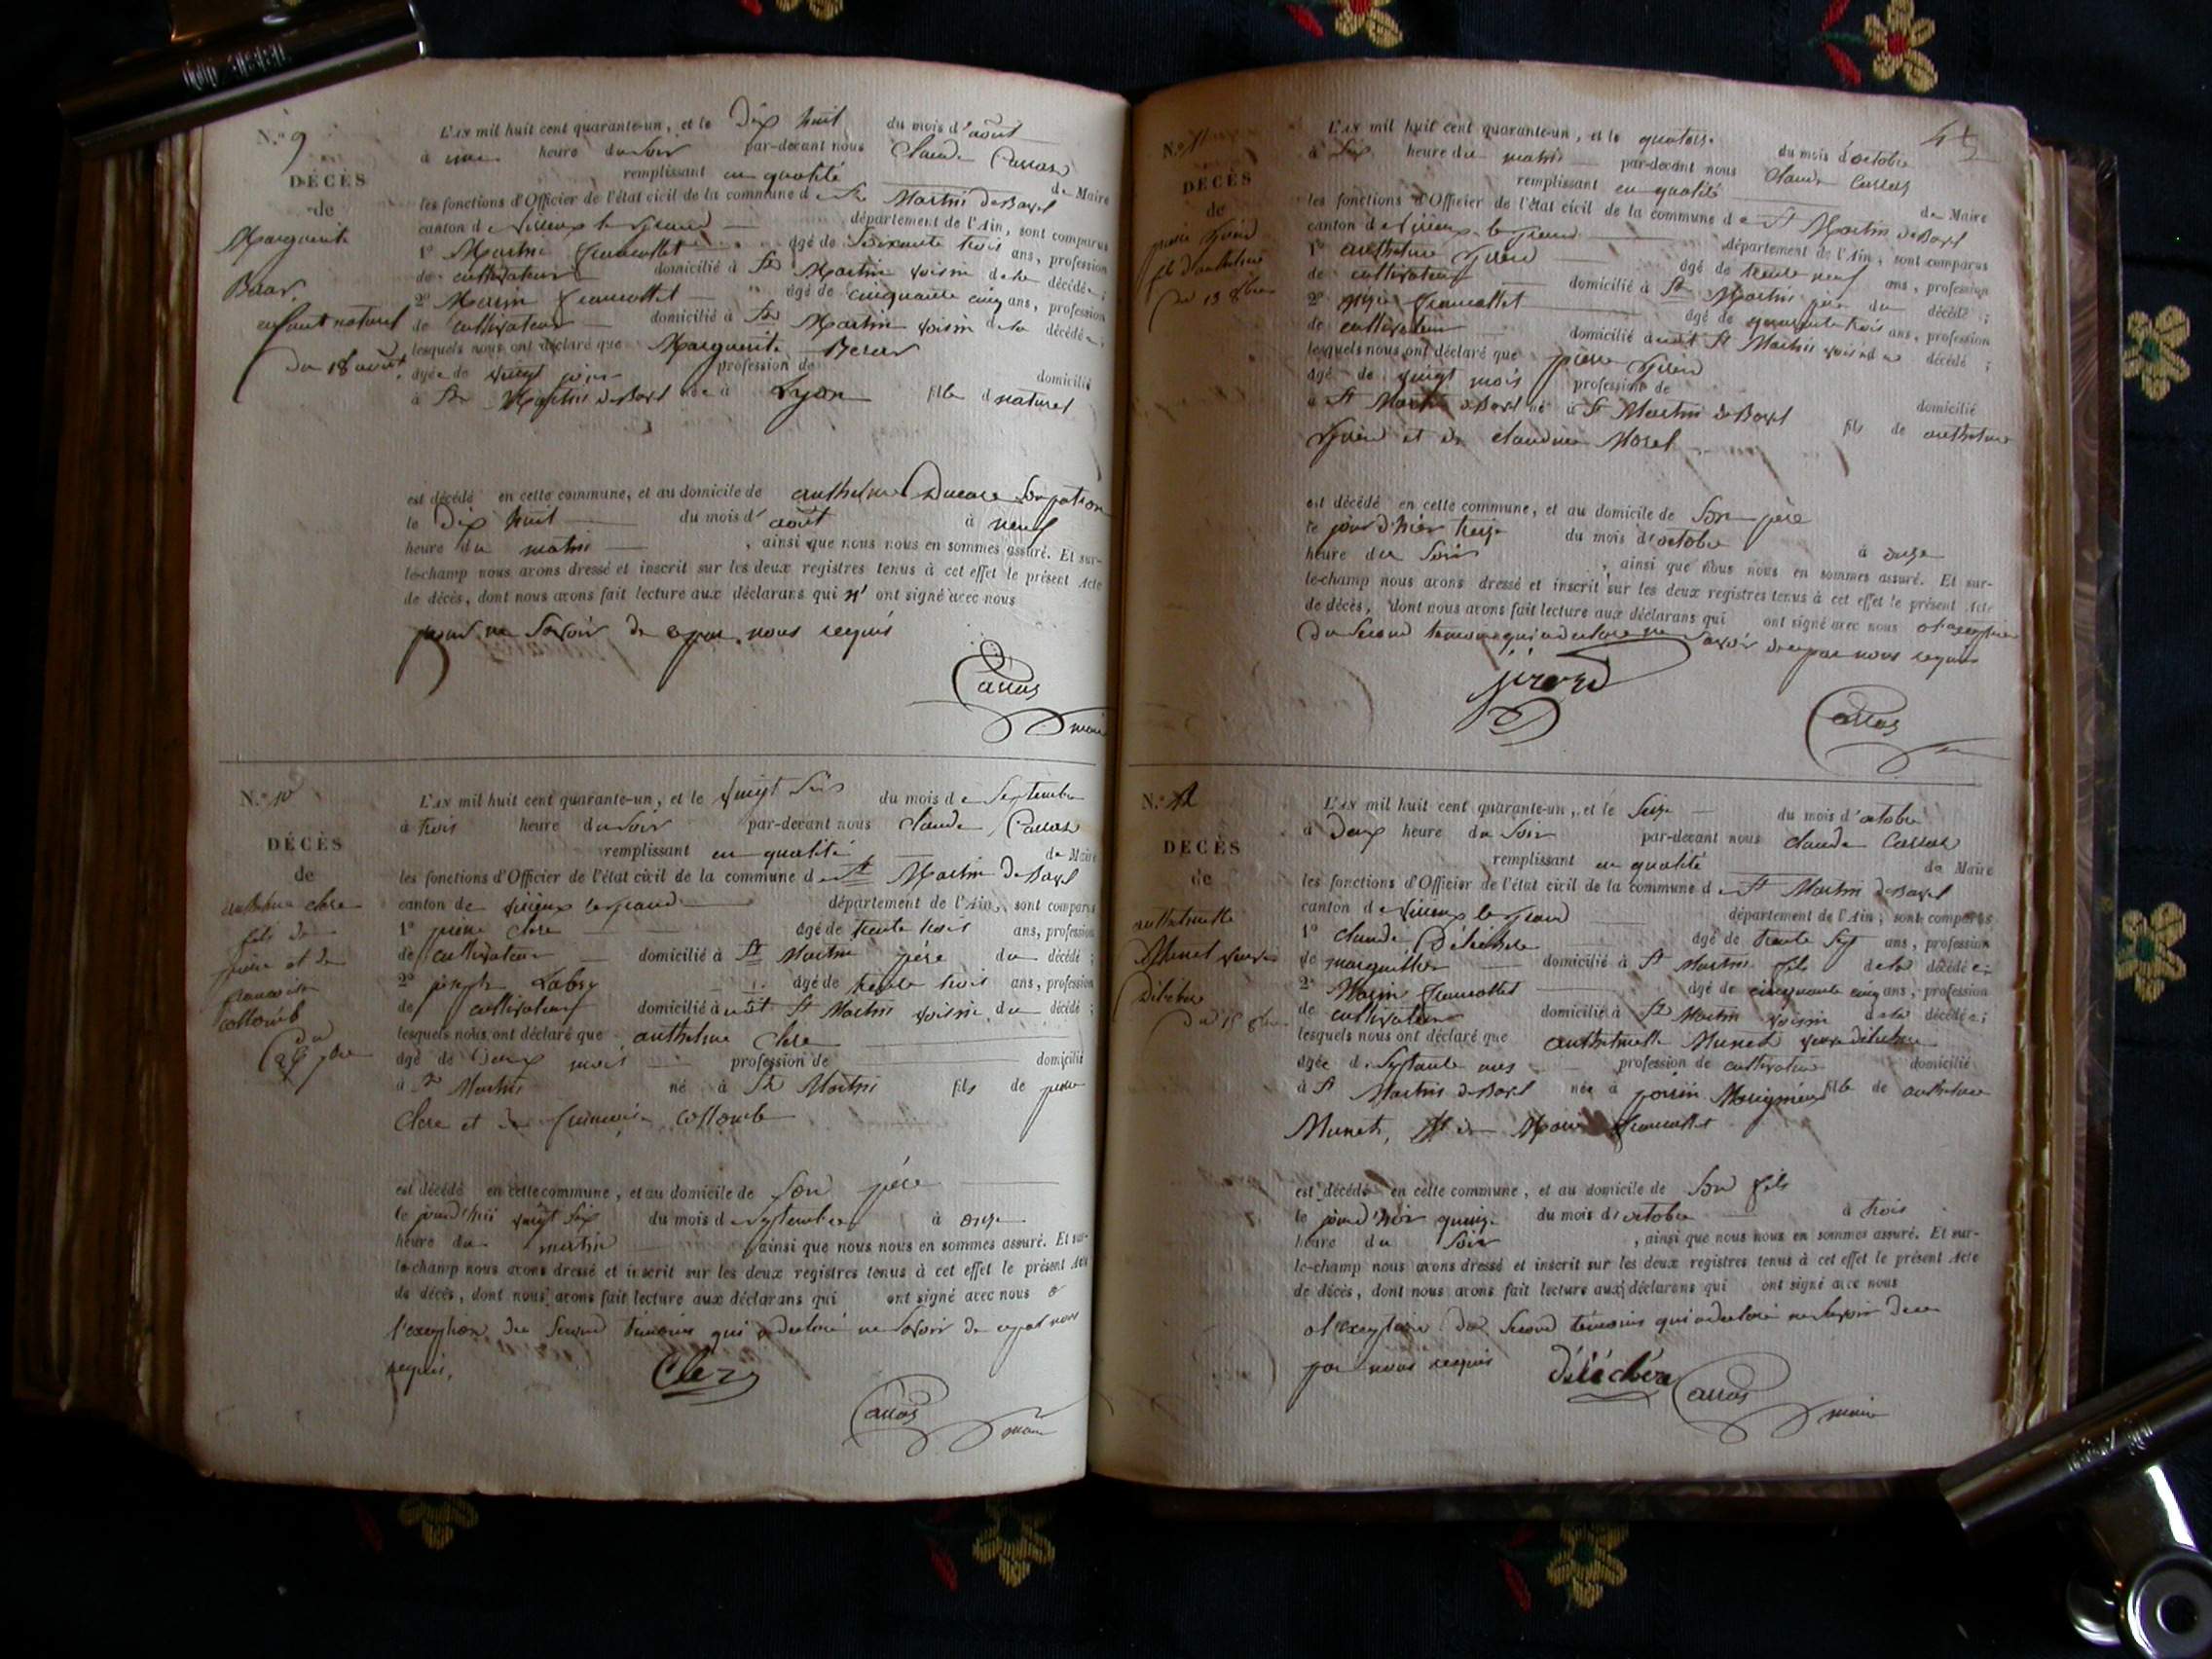 N.° 9
DÉCÈS
de
Marguerite
Baar
enfant naturel
du 18 août
L'AN mil huit cent quarante-un, et le Dix huit du mois d'août
à une heure du soir par-devant nous Claude Carras
remplissant en qualité de Maire
les fonctions d'Officier de l'état civil de la commune de St Martin de Bavel
canton de Virieux le grand département de l'Ain, sont comparus
1° Martin Francollet âgé de Soixante trois ans, profession
de cultivateur domicilié à St Martin voisin de la décédée;
2° Marin Francollet âgé de cinquante cinq ans, profession
de cultivateur domicilié à St Martin voisin de la décédée,
lesquels nous ont déclaré que Marguerite
âgée de vingt jours profession de domicilié
à St Martin de Bavel née à Lyon fille d naturel
est décédé en cette commune, et au domicile de anthelme Ducore son patron
le Dix huit du mois d'août à neuf
heure du matin , ainsi que nous nous en sommes assuré. Et sur-
le-champ nous avons dressé et inscrit sur les deux registres tenus à cet effet le présent Acte
de décès, dont nous avons fait lecture aux déclarans qui n'ont signé avec nous
pour ne savoir de ce par nous requis
Carras
maire
N.° 10
DÉCÈS
de
anthelme clerc
fils de
pierre et de
francoise
collomb
du
26 7bre
L'AN mil huit cent quarante-un, et le vingt six du mois de Septembre
à trois heure du soir par-devant nous Claude Carras
remplissant en qualité de Maire
les fonctions d'Officier de l'état civil de la commune de St Martin de Bavel
canton de virieux le grand département de l'Ain, sont comparus
1° pierre clerc âgé de trente trois ans, profession
de cultivateur domicilié à St Martin père du décédé;
2° joseph Labry âgé de trente trois ans, profession
de cultivateur domicilié à udit St Martin voisin du décédé;
lesquels nous ont déclaré que anthelme clerc
âgé de Deux mois profession de domicilié
à St Martin né à St Martin fils de pierre
clerc et de francoise collomb
est décédé en cette commune, et au domicile de son père
le jourd'hui vingt six du mois de septembre à onze
heure du matin ainsi que nous nous en sommes assuré. Et sur-
le-champ nous avons dressé et inscrit sur les deux registres tenus à cet effet le présent Acte
de décès, dont nous avons fait lecture aux déclarans qui ont signé avec nous a
l'exception du second témoins qui a declaré ne savoir de ce par nous
requis,
Clerc
Carras
maire
45
N.° 11
DÉCÈS
de
fils d'anthelme
du 13 8bre
L'AN mil huit cent quarante-un, et le quatorze du mois d'octobre
à Six heure du matin par-devant nous Claude Carras
remplissant en qualité de Maire
les fonctions d'Officier de l'état civil de la commune de St Martin de Bavel
canton de Virieux le grand département de l'Ain, sont comparus
1° anthelme âgé de trente neuf ans, profession
de cultivateur domicilié à St Martin père du décédé;
2° Francollet âgé de quarante trois ans, profession
de cultivateur domicilié audit St Martin voisin du décédé;
lesquels nous ont déclaré que pierre
âgé de vingt mois profession de domicilié
à St Martin de Bavel né à St Martin de Bavel fils de anthelme
et de claudine Morel
est décédé en cette commune, et au domicile de son père
le jour d'hier treize du mois d'octobre à onze
heure du soir , ainsi que nous nous en sommes assuré. Et sur-
le-champ nous avons dressé et inscrit sur les deux registres tenus à cet effet le présent Acte
de décès, dont nous avons fait lecture aux déclarans qui ont signé avec nous
du second temoins qui a declaré ne savoir de ce par nous requis
jirord
Carras
N.° 12
DÉCÈS
de
anthelmette
Munet veuve
du 15 8bre
L'AN mil huit cent quarante-un, et le seize du mois d'octobre
à Deux heure du soir par-devant nous Claude Carras
remplissant en qualité de Maire
les fonctions d'Officier de l'état civil de la commune de St Martin de Bavel
canton de Virieux le grand département de l'Ain, sont comparus
1° Claude âgé de trente sept ans, profession
de marguillier domicilié à St Martin fils de la décédée;
2° Marin Francollet âgé de cinquante cinq ans, profession
de cultivateur domicilié à St Martin voisin de la décédée;
lesquels nous ont déclaré que anthelmette Munet veuve
âgée de Septante ans profession de cultivatrice domicilié
à St Martin de Bavel née à fille de anthelme
Munet, et de Francollet
est décédé en cette commune, et au domicile de son fils
le jour d'hier quinze du mois d'octobre à trois
heure du soir , ainsi que nous nous en sommes assuré. Et sur-
le-champ nous avons dressé et inscrit sur les deux registres tenus à cet effet le présent Acte
de décès, dont nous avons fait lecture aux déclarans qui ont signé avec nous
a l'exception du second témoins qui a declaré ne savoir de ce
par nous requis
déléchère
Carras
maire